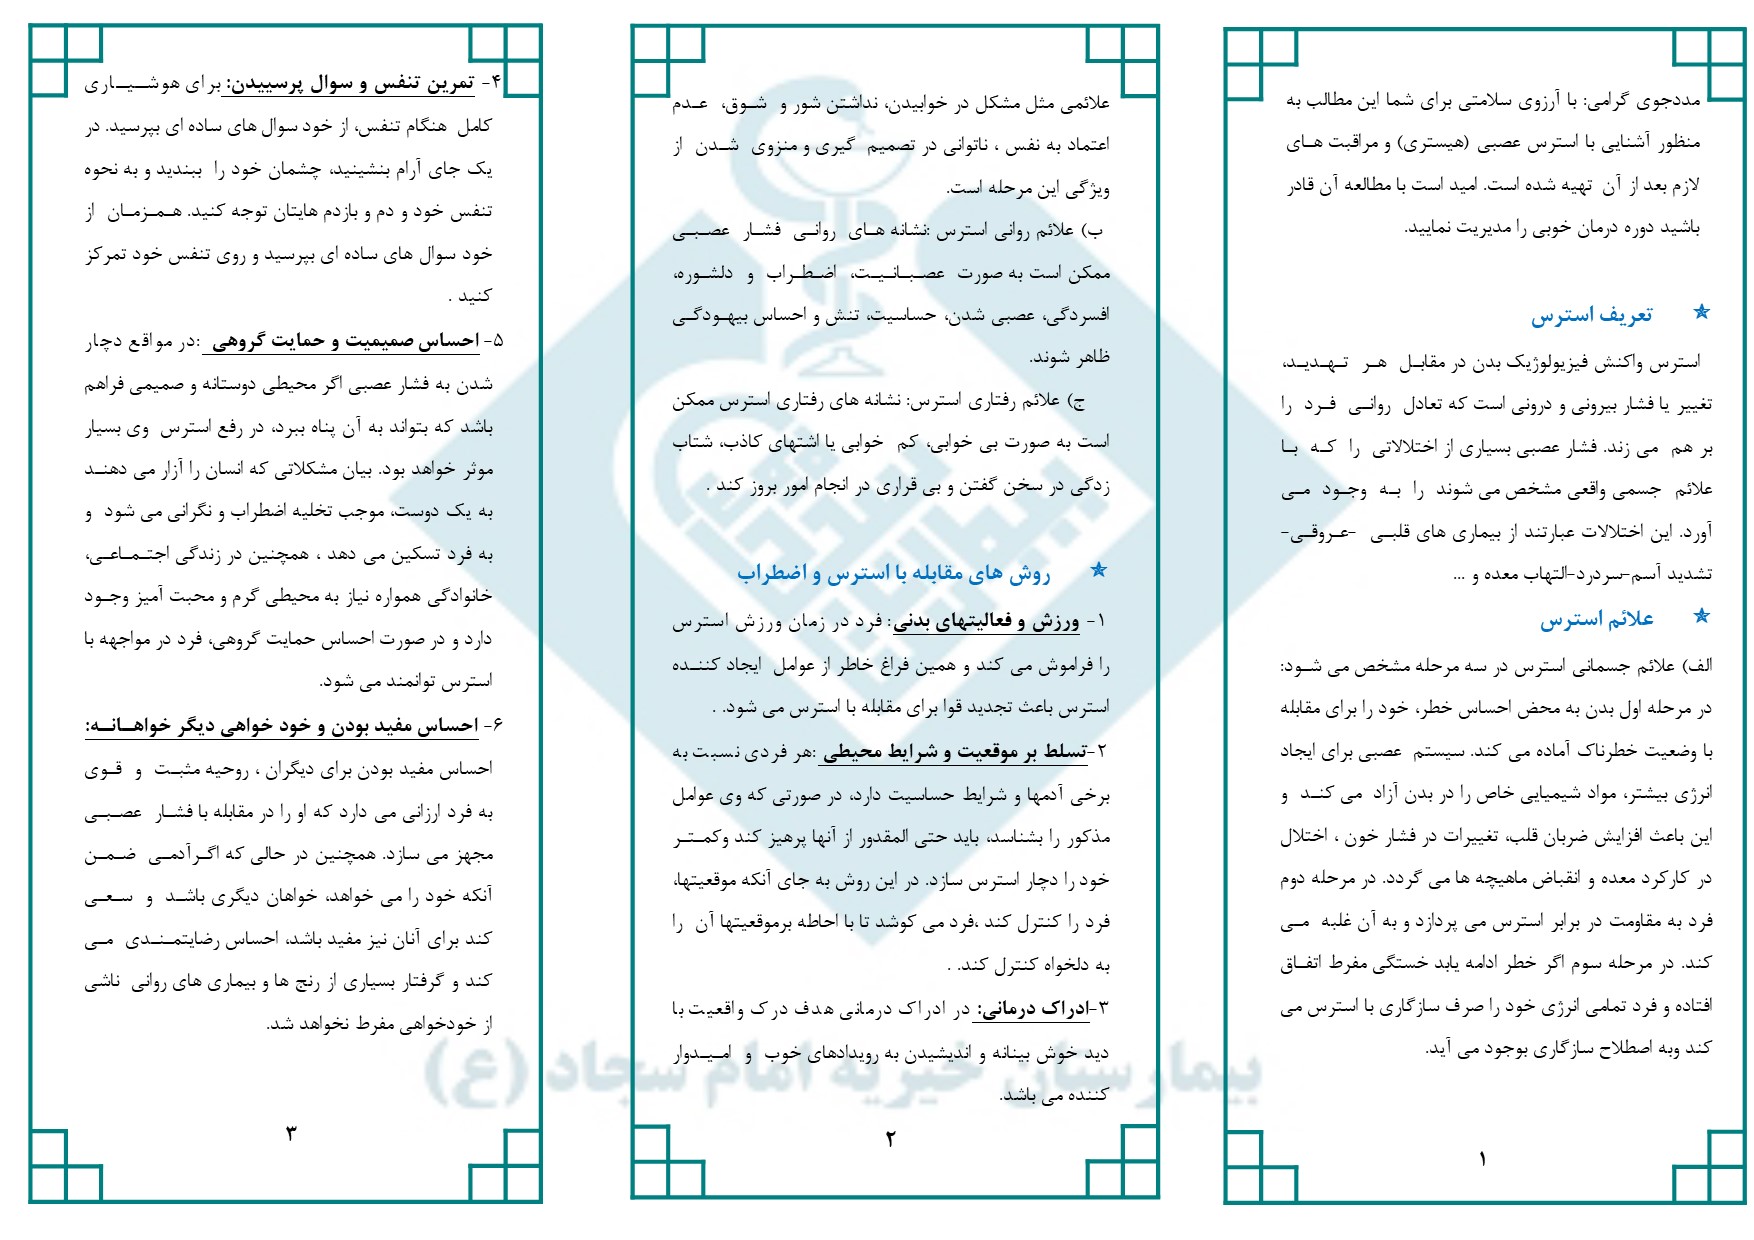 مددجوی گرامی: با آرزوی سلامتی برای شما این مطالب به
منظور آشنایی با استرس عصبی (هیستری) و مراقبت های
لازم بعد از آن تهیه شده است. امید است با مطالعه آن قادر
باشید دوره درمان خوبی را مدیریت نمایید.
تعریف استرس
استرس واکنش فیزیولوژیک بدن در مقابل هر تهدید،
تغییر یا فشار بیرونی و درونی است که تعادل روانی فرد را
بر هم می زند. فشار عصبی بسیاری از اختلالاتی را که با
علائم جسمی واقعی مشخص می شوند را به وجود می
آورد. این اختلالات عبارتند از بیماری های قلبی -عروقی-
تشدید آسم-سردرد-التهاب معده و ...
علائم استرس
الف) علائم جسمانی استرس در سه مرحله مشخص می شود:
در مرحله اول بدن به محض احساس خطر، خود را برای مقابله
با وضعیت خطرناک آماده می کند. سیستم عصبی برای ایجاد
انرژی بیشتر، مواد شیمیایی خاص را در بدن آزاد می کند و
این باعث افزایش ضربان قلب، تغییرات در فشار خون ، اختلال
در کارکرد معده و انقباض ماهیچه ها می گردد. در مرحله دوم
فرد به مقاومت در برابر استرس می پردازد و به آن غلبه می
کند. در مرحله سوم اگر خطر ادامه یابد خستگی مفرط اتفاق
افتاده و فرد تمامی انرژی خود را صرف سازگاری با استرس می
کند وبه اصطلاح سازگاری بوجود می آید.
۱
علائمی مثل مشکل در خوابیدن، نداشتن شور و شوق، عدم
اعتماد به نفس ، ناتوانی در تصمیم گیری و منزوی شدن از
ویژگی این مرحله است.
ب) علائم روانی استرس :نشانه های روانی فشار عصبی
ممکن است به صورت عصبانیت، اضطراب و دلشوره،
افسردگی، عصبی شدن، حساسیت، تنش و احساس بیهودگی
ظاهر شوند.
ج) علائم رفتاری استرس: نشانه های رفتاری استرس ممکن
است به صورت بی خوابی، کم خوابی یا اشتهای کاذب، شتاب
زدگی در سخن گفتن و بی قراری در انجام امور بروز کند .
روش های مقابله با استرس و اضطراب
۱- ورزش و فعالیتهای بدنی: فرد در زمان ورزش استرس
را فراموش می کند و همین فراغ خاطر از عوامل ایجاد کننده
استرس باعث تجدید قوا برای مقابله با استرس می شود. .
۲-تسلط بر موقعیت و شرایط محیطی :هر فردی نسبت به
برخی آدمها و شرایط حساسیت دارد، در صورتی که وی عوامل
مذکور را بشناسد، باید حتی المقدور از آنها پرهیز کند وکمتر
خود را دچار استرس سازد. در این روش به جای آنکه موقعیتها،
فرد را کنترل کند ،فرد می کوشد تا با احاطه برموقعیتها آن را
به دلخواه کنترل کند. .
۳-ادراک درمانی: در ادراک درمانی هدف درک واقعیت با
دید خوش بینانه و اندیشیدن به رویدادهای خوب و امیدوار
کننده می باشد.
۲
۴- تمرین تنفس و سوال پرسییدن: برای هوشیاری
کامل هنگام تنفس، از خود سوال های ساده ای بپرسید. در
یک جای آرام بنشینید، چشمان خود را ببندید و به نحوه
تنفس خود و دم و بازدم هایتان توجه کنید. همزمان از
خود سوال های ساده ای بپرسید و روی تنفس خود تمرکز
کنید .
۵- احساس صمیمیت و حمایت گروهی :در مواقع دچار
شدن به فشار عصبی اگر محیطی دوستانه و صمیمی فراهم
باشد که بتواند به آن پناه ببرد، در رفع استرس وی بسیار
موثر خواهد بود. بیان مشکلاتی که انسان را آزار می دهند
به یک دوست، موجب تخلیه اضطراب و نگرانی می شود و
به فرد تسکین می دهد ، همچنین در زندگی اجتماعی،
خانوادگی همواره نیاز به محیطی گرم و محبت آمیز وجود
دارد و در صورت احساس حمایت گروهی، فرد در مواجهه با
استرس توانمند می شود.
۶- احساس مفید بودن و خود خواهی دیگر خواهانه:
احساس مفید بودن برای دیگران ، روحیه مثبت و قوی
به فرد ارزانی می دارد که او را در مقابله با فشار عصبی
مجهز می سازد. همچنین در حالی که اگرآدمی ضمن
آنکه خود را می خواهد، خواهان دیگری باشد و سعی
کند برای آنان نیز مفید باشد، احساس رضایتمندی می
کند و گرفتار بسیاری از رنج ها و بیماری های روانی ناشی
از خودخواهی مفرط نخواهد شد.
۳
بیمارستان خیریه امام سجاد (ع)